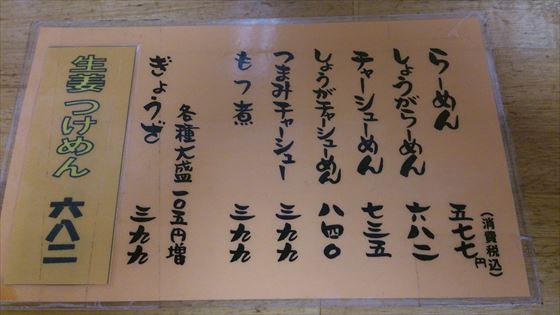 らーめん 五七七円
(消費税込)
しょうがらーめん 六八二
チャーシューめん 七三五
しょうがチャーシューめん 八四〇
つまみチャーシュー 三九九
もつ煮 三九九
各種大盛一〇五円増
ぎょうざ 三九九
生姜つけめん 六八二